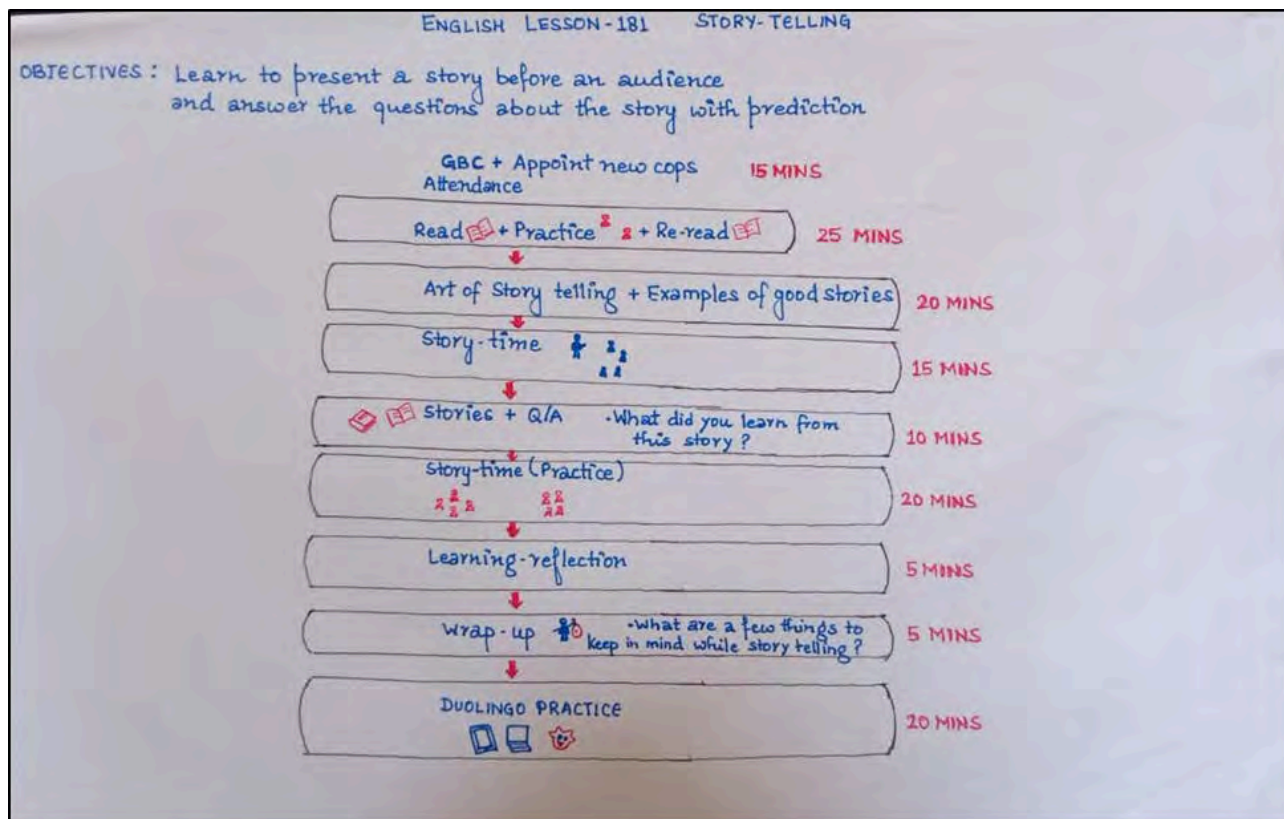 ENGLISH LESSON-181 STORY-TELLING
OBJECTIVES: Learn to present a story before an audience
and answer the questions about the story with prediction
GBC + Appoint new cops 15 MINS
Attendance
Read + Practice + Re-read 25 MINS
Art of Story telling + Examples of good stories 20 MINS
Story-time 15 MINS
Stories + Q/A •What did you learn from
this story? 10 MINS
Story-time (Practice)
20 MINS
Learning-reflection 5 MINS
Wrap-up •What are a few things to
keep in mind while story telling? 5 MINS
DUOLINGO PRACTICE
20 MINS